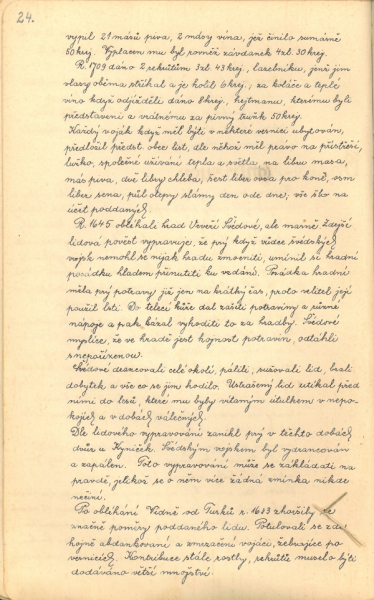 24.
vypil 21 másů piva, 2 másy vína, jež činilo sumárně
50 krej. Vyplacen mu byl rovněž závdanek 4 zl. 30 krej.
R. 1709 dáno 2 rekrutům 3 zl. 43 krej., lazebníku, jenž jim
vlasy oběma stříhal a je holil 6 krej., za koláče a teplé
víno když odjížděli dáno 8 krej., hejtmanu, kterému byli
představeni a vrátnému za pivný truňk 50 krej.
Každý voják když měl býti v některé vesnici ubytován,
předložil předst. obce list, dle něhož měl právo na přístřeší,
lůžko, společné užívání tepla a světla, na libru masa,
más piva, dvě libry chleba, šest liber ovsa pro koně, osm
liber sena, půl otepy slámy den ode dne; vše šlo na
účet poddaných.
R. 1645 obléhali hrad Veveří Švédové, ale marně. Zdejší
lidová pověst vypravuje, že prý když vůdce švédských
vojsk nemohl se nijak hradu zmocniti, umínil si hradní
posádku hladem přinutiti ku vzdání. Posádka hradní
měla prý potravy již jen na krátký čas, proto velitel její
použil lsti. Do telecí kůže dal zašíti potraviny a různé
nápoje a pak kázal vyhoditi to za hradby. Švédové
myslíce, že ve hradě jest hojnost potravin, odtáhli
s nepořízenou.
Švédové drancovali celé okolí, pálili, sužovali lid, brali
dobytek a vše co se jim hodilo. Ustrašený lid utíkal před
nimi do lesů, které mu byly vítaným útulkem v nepo-
kojích a v dobách válečných.
Dle lidového vypravování zanikl prý v těchto dobách
dvůr u Kyniček. Švédským vojskem byl vydrancován
a zapálen. Toto vypravování může se zakládati na
pravdě, jelikož se o něm více žádná zmínka nikde
nečiní.
Po obléhání Vídně od Turků r. 1683 zhoršily se
značně poměry poddaného lidu. Potulovali se zde
hojně abdankovaní a zmrzačení vojáci, žebrajíce po
vesnicích. Kontribuce stále rostly, rekrutů muselo býti
dodáváno větší množství.